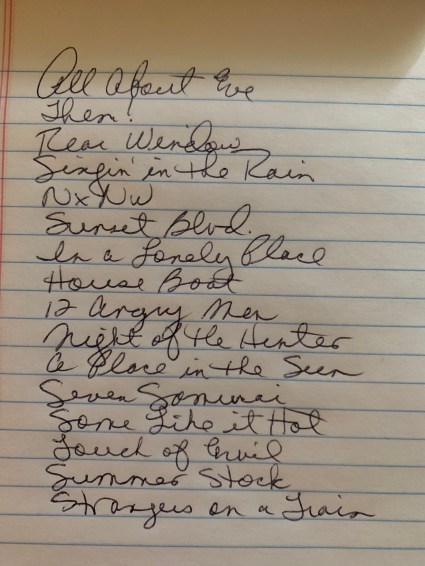 All About Eve
Them!
Rear Window
Singin' in the Rain
NxNW
Sunset Blvd.
In a Lonely Place
House Boat
12 Angry Men
Night of the Hunter
A Place in the Sun
Seven Samurai
Some Like it Hot
Touch of Evil
Summer Stock
Strangers on a Train